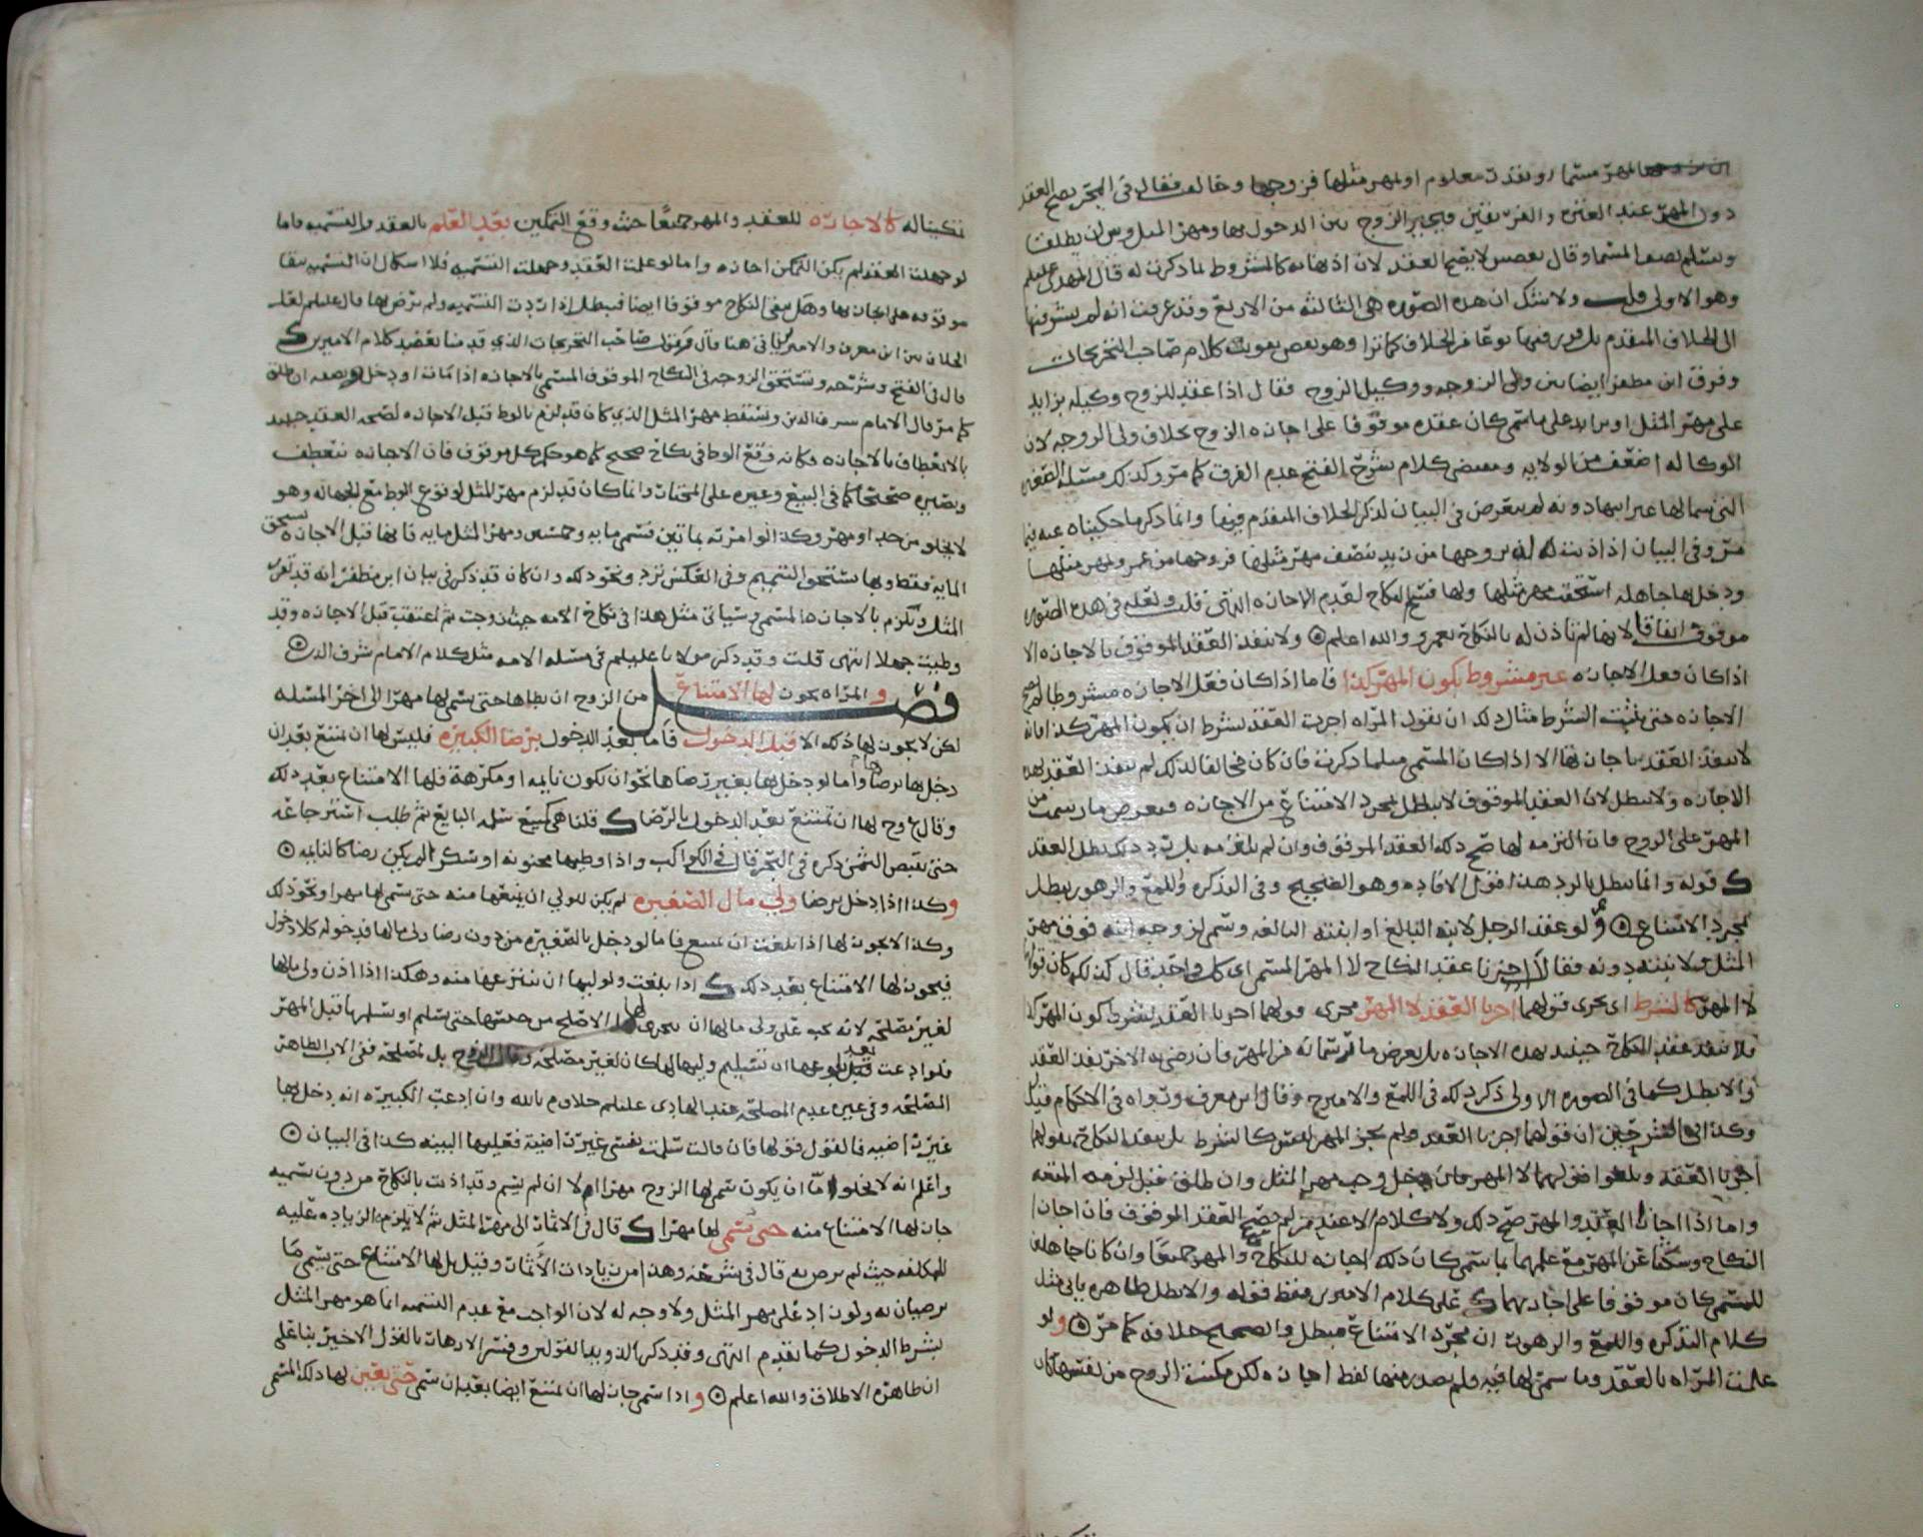 لمهر مسما او بنقد معلوم او لمهر مثلها فزوجها وخالف فقال في البحر يصح العقد
دون المهر عند العتره والفريقين ويخير الزوج بين الدخول بها ومهر المثل وبين ان يطلق
ويسلم نصف المسما وقال بعض لا يصح العقد لان اذنها به كالمشروط بما ذكرت له قال المهدي عليلم
وهو الاولى قلت ولا شك ان هذه الصوره هي الثالثه من الاربع وقد عرفت انه لم يشر فيها
الى الخلاف المتقدم بل فيها نوعا من الخلاف كما ترا وهو بعض تقويت كلام صاحب التخريجات
وفرق ابن مظفر ايضا بين ولي الزوجه ووكيل الزوج فقال اذا عقد للزوج وكيله بزايد
على مهر المثل او بزايد على ما سمى كان عقده موقوفا على اجازه الزوج بخلاف ولي الزوجه لان
الوكاله اضعف من الولايه ومقتضى كلام شرح الفتح عدم الفرق كما مر وكذلك مسئله الصغيره
التي سما لها غير ابيها دونه لم يتعرض في البيان لذكر الخلاف المتقدم فيها وانما ذكر ما حكيناه عنه فيما
مر وفي البيان اذا اذنت له ان يزوجها من زيد بنصف مهر مثلها فزوجها من عمرو بمهر مثلها
ودخل بها جاهله استحقت مهر مثلها ولها فسخ النكاح لعدم الاجازه انتهى قلت ولعله في هذه الصوره
موقوف اتفاقا لانها لم تاذن له بالنكاح بعمرو والله اعلم ولا ينفذ العقد الموقوف بالاجازه الا
اذا كان فعل الاجازه غير مشروط بكون المهر كذا فاما اذا كان فعل الاجازه مشروطا لم تصح
الاجازه حتى يثبت الشرط مثال ذلك ان تقول المراه اجزت العقد بشرط ان يكون المهر كذا فانه
لا ينفذ العقد باجازتها الا اذا كان المسمى مثلما ذكرت فان كان مخالفا لذلك لم ينفذ العقد بهذه
الاجازه ولا يبطل لان العقد الموقوف لا يبطل بمجرد الامتناع من الاجازه فيعرض ما رسمت من
المهر على الزوج فان التزمه لها صح ذلك العقد الموقوف وان لم يلتزمه بل رد ذلك بطل العقد
قوله وانما يبطل بالرد هذا قول الافاده وهو الصحيح وفي التذكره واللمع والزهور يبطل
بمجرد الامتناع ولو عقد الرجل لابنه البالغ او ابنته البالغه وسمى لزوجه ابنه فوق مهر
المثل ولابنته دونه فقالا اجزنا عقد النكاح لا المهر المسمى اي كل واحد قال كذلك كان قولهما
لا المهر كالشرط اي يجرى قولهما اجزنا العقد لا المهر مجرى قولهما اجزنا العقد بشرط كون المهر كذا
فلا ينفذ عقد النكاح حينئذ بهذه الاجازه بل يعرض ما رسماه من المهر فان رضي به الاخر نفذ العقد
والا بطل كما في الصوره الاولى ذكر ذلك في اللمع والامير ح وقال ابن معرف ورواه في الاحكام قيل
وكذا في الشرحين ان قولهما اجزنا العقد ولم يجز المهر ليس كالشرط بل ينفذ النكاح بقولهما
اجزنا العقد ويلغوا قولهما لا المهر فان دخل وجب مهر المثل وان طلق قبل لزمه المتعه
واما اذا اجازا العقد والمهر صح ذلك ولا كلام الا عند من لم يصحح العقد الموقوف فان اجازا
النكاح وسكتا عن المهر مع علمهما بما سمى كان ذلك اجازه للنكاح والمهر جميعا وان كانا جاهلين
للمسمى كان موقوفا على اجازتهما على كلام الاميرين فقط فقوله والا بطل ظاهره ياتي مثل
كلام التذكره واللمع والزهور ان مجرد الامتناع مبطل والصحيح خلافه كما مر ولو
علمت المراه بالعقد وما سمى لها فيه ولم يصدر منها لفظ اجازه لكن مكنت الزوج من نفسها كان
تمكينها له كالاجازه للعقد والمهر جميعا حيث وقع التمكين بعد العلم بالعقد والتسميه فاما
لو جهلت العقد لم يكن التمكن اجازه واما لو علمت العقد وجهلت التسميه فلا اشكال ان التسميه تبقا
موقوفه على اجازتها وهل يبقى النكاح موقوفا ايضا فيبطل اذا ردت التسميه ولم ترض بها قال عليلم لعل
الخلاف بين ابن معرف والاميرين ياتي هنا قال وقول صاحب التخريجات الذي قدمنا يعضد كلام الاميرين
قال في الفتح وشرحه وتستحق الزوجه في النكاح الموقوف المسمى بالاجازه اذا مات او دخل ونصفه ان طلق
كما مر قال الامام شرف الدين ويسقط مهر المثل الذي كان قد لزم بالوطء قبل الاجازه لصحه العقد حينئذ
بالانعطاف بالاجازه فكانه وقع الوطء في نكاح صحيح كما هو حكم كل موقوف فان الاجازه تنعطف
وتصيره صحيحا كما في البيع وغيره على المختار وانما كان قد لزم مهر المثل لوقوع الوطء مع الجهاله وهو
لا يخلو من حد او مهر وكذا لو امرته بمائتين فسمى مايه وخمسين ومهر المثل مايه فانها قبل الاجازه تستحق
المايه فقط وبها تستحق التتميم وفي العكس ترد ونحو ذلك وان كان قد ذكر في بيان ابن مظفر انه قد تقرر
المثل وتلزم بالاجازه المسمى وسياتي مثل هذا في نكاح الامه حيث زوجت ثم اعتقت قبل الاجازه وقد
وطيت جهلا انتهى قلت وقد ذكر مولانا عليلم في مسئله الامه مثل كلام الامام شرف الدين
فصل والمراه يجوز لها الامتناع من الزوج ان يطاها حتى يسمى لها مهرا الى اخر المسئله
لكن لا يجوز لها ذلك الا قبل الدخول فاما بعد الدخول برضا الكبيره فليس لها ان تمتنع بعد ان
دخل بها برضاها واما لو دخل بها بغير رضاها نحو ان تكون نايمه او مكرهه فلها الامتناع بعد ذلك
وقال ع وح لها ان تمتنع بعد الدخول بالرضا قلنا هي كمبيع سلمه البايع ثم طلب استرجاعه
حتى يقبض الثمن ذكره في البحر قال في الكواكب واذا وطيها مجنونه او سكرا لم يكن رضا كالنايمه
وكذا اذا دخل برضا ولي مال الصغيره لم يكن للولي ان يمنعها منه حتى يسمى لها مهرا ونحو ذلك
وكذا لا يجوز لها اذا بلغت ان تمتنع فاما لو دخل بالصغيره من دون رضا ولي مالها فدخوله كلا دخول
فيجوز لها الامتناع بعد ذلك اذا بلغت ولوليها ان ينتزعها منه وهكذا اذا اذن ولي مالها
لغير مصلحه لانه يجب على ولي مالها ان يتحرى لها الاصلح من حبسها حتى يسلم او تسلمها قبل المهر
فلو ادعت بعد بلوغها ان تسليم وليها لها كان لغير مصلحه وقال الزوج بل لمصلحه ففي الاب الظاهر
المصلحه وفي غيره عدم المصلحه عند الهادي عليلم خلاف م بالله وان ادعت الكبيره انه دخل بها
غير راضيه فالقول قولها فان قالت سلمت نفسي غير راضيه فعليها البينه كذا في البيان
واعلم انه لا يخلو اما ان يكون سمى لها الزوج مهرا ام لا ان لم يسم وقد اذنت بالنكاح من دون تسميه
جاز لها الامتناع منه حتى يسمى لها مهرا قال في الاثمار الى مهر المثل ثم لا يلزمه الزياده عليه
المكلفه حيث لم يرض به قال في شرحه وهذا من زيادات الاثمار وقيل بل لها الامتناع حتى يسمى ما
يرضيان به ولو زاد على مهر المثل ولا وجه له لان الواجب مع عدم التسميه انما هو مهر المثل
بشرط الدخول كما تقدم انتهى وقد ذكر الدواري القولين وفسر الازهار بالقول الاخير بنا على
ان ظاهره الاطلاق والله اعلم واذا سمى جاز لها ان تمتنع ايضا بعد ان سمى حتى يعين لها ذلك المسمى